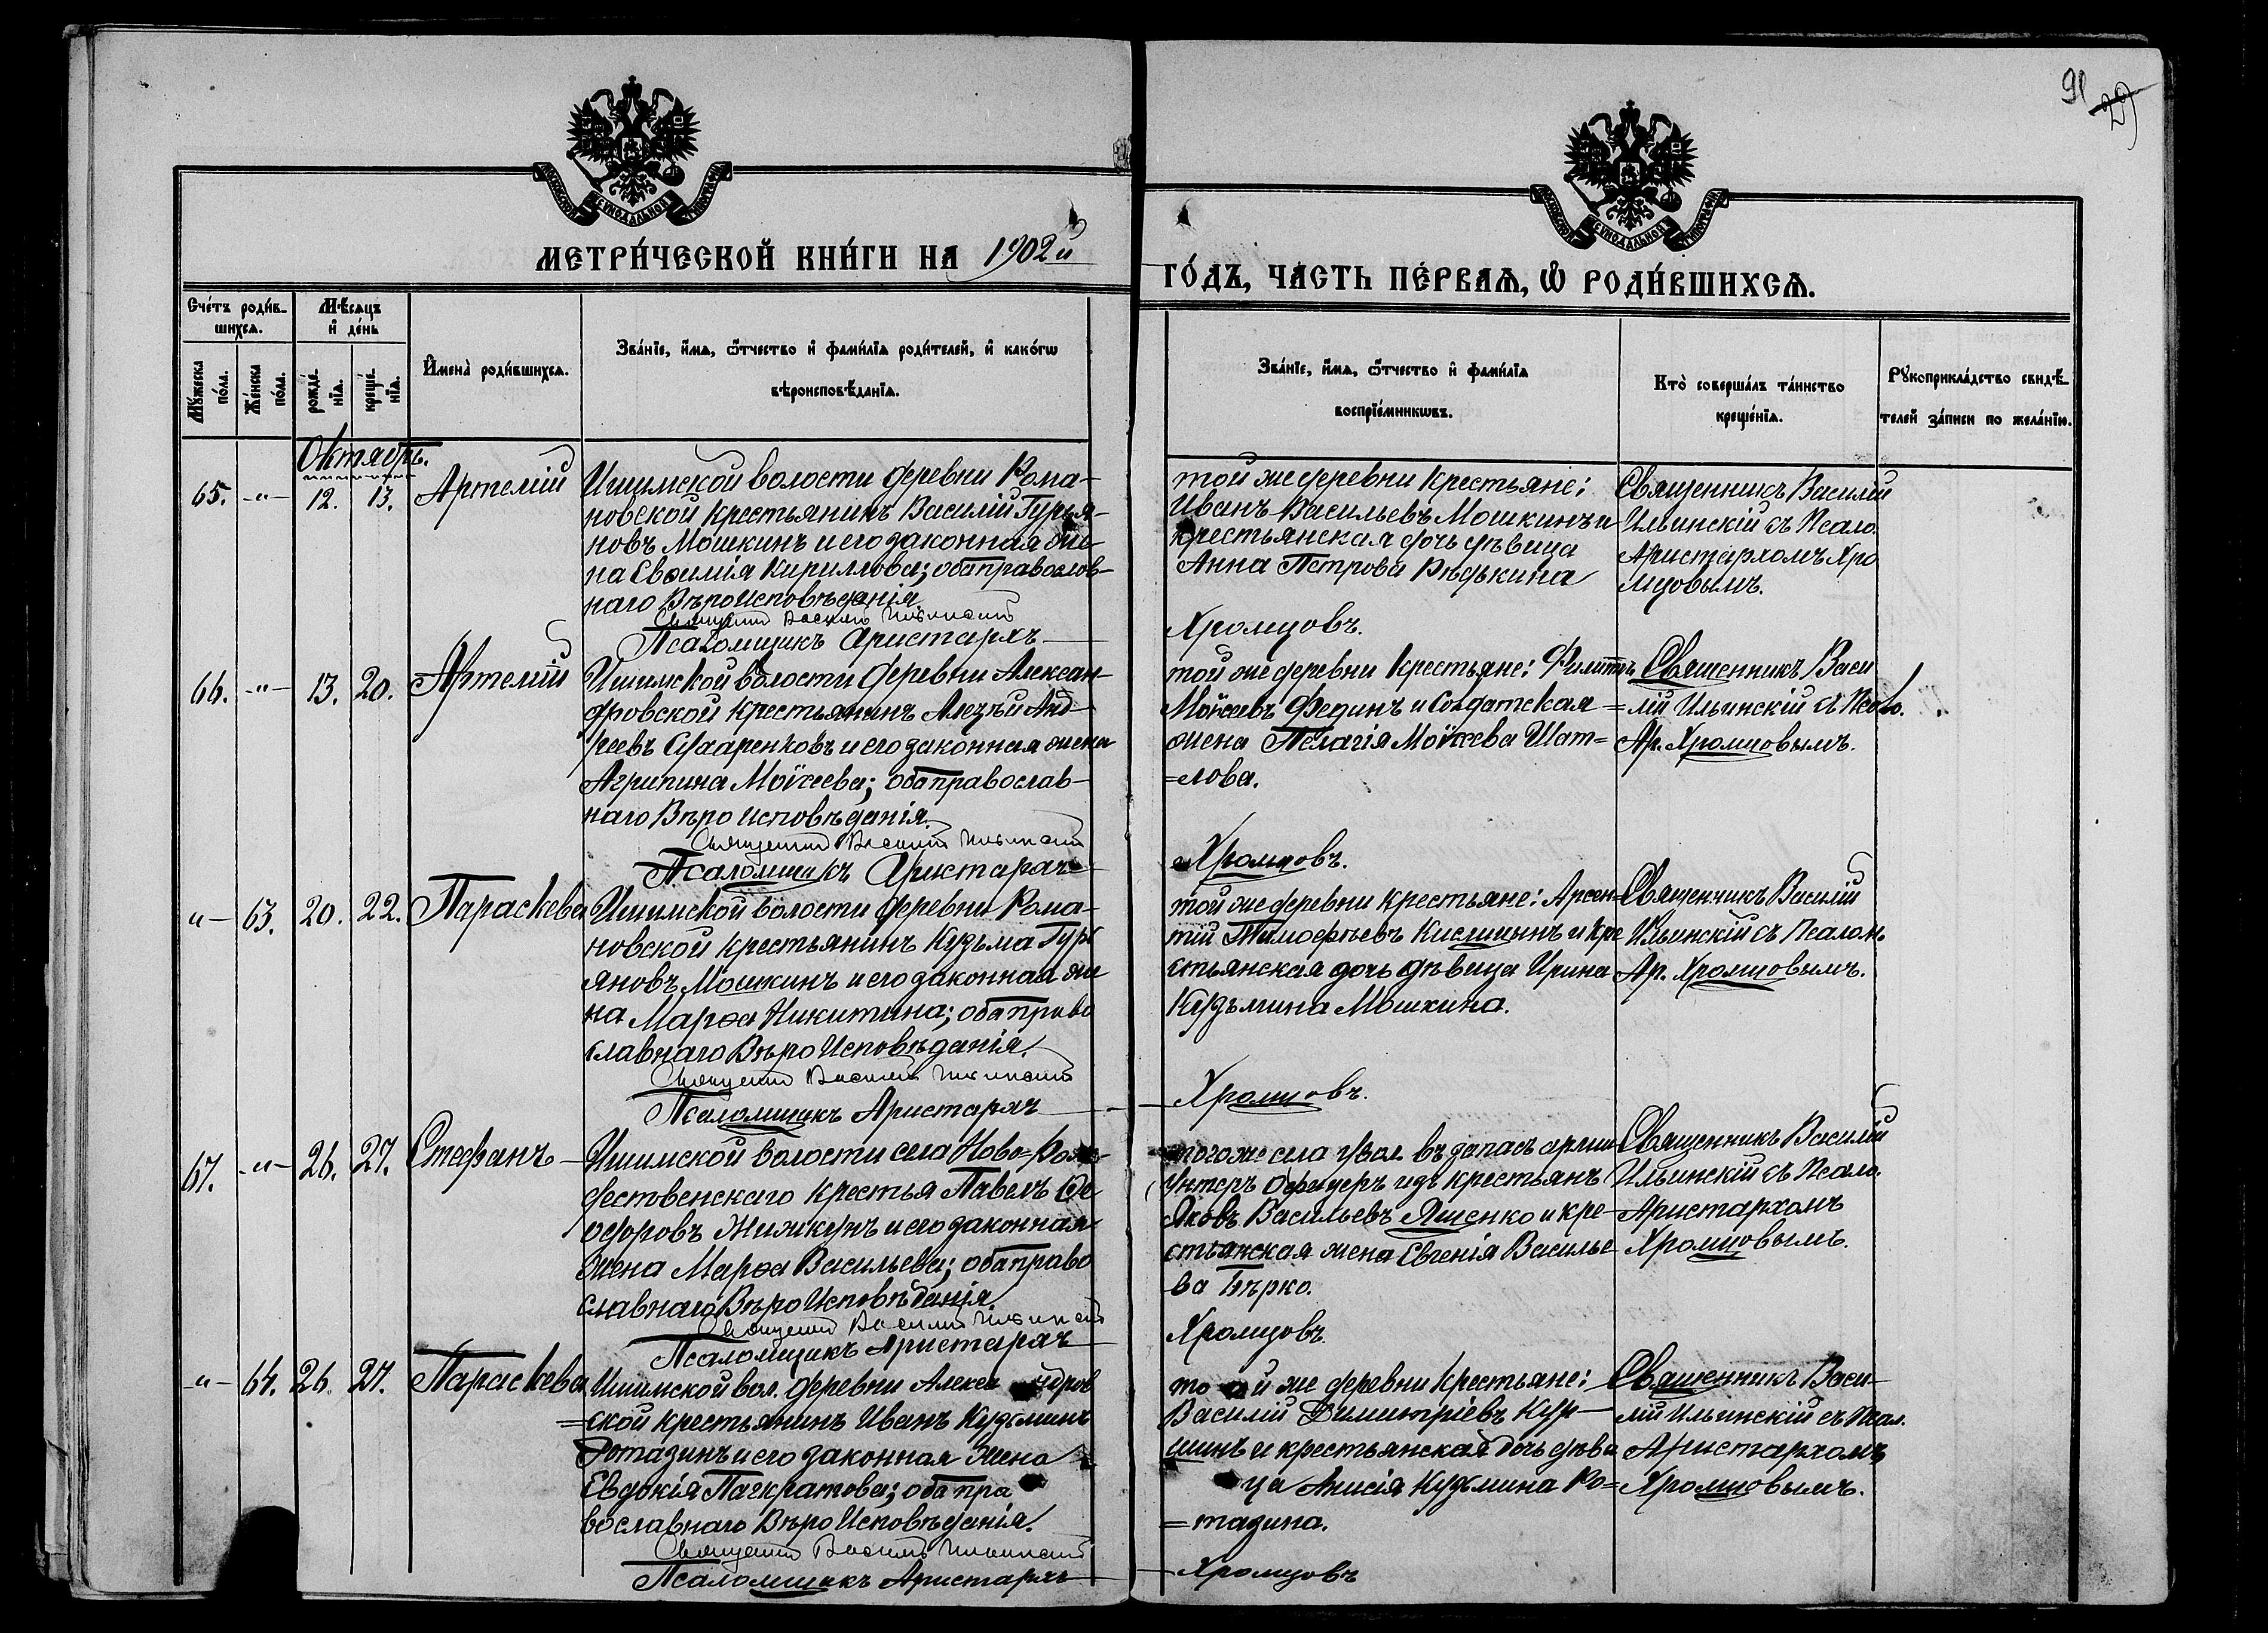 91
29
МОСКОВСКОЙ СѴНОДАЛЬНОЙ ТИПОГРАФІИ
МОСКОВСКОЙ СѴНОДАЛЬНОЙ ТИПОГРАФІИ
МЕТРИ́ЧЕСКОЙ КНИ́ГИ НА 1902й
ГО́ДЪ, ЧА́СТЬ ПЕ́РВАѦ, Ѽ РОДИ́ВШИХСѦ.
Сче́тъ роди́в-
шихсѧ.
Мѣ́сѧцъ
и҆ де́нь
Мꙋ́жеска
по́ла.
Же́нска
по́ла.
рожде́-
нїѧ.
креще́-
нїѧ.
И҆мена̀ роди́вшихсѧ.
Зва́нїе, и҆́мѧ, ѻ҆́тчество и҆ фами́лїѧ роди́телей, и҆ како́гѡ
вѣроисповѣ́данїѧ.
Зва́нїе, и҆́мѧ, ѻ҆́тчество и҆ фами́лїѧ
воспрїе́мникѡвъ.
Кто̀ соверша́лъ та́инство
креще́нїѧ.
Рꙋкоприкла́дство свидѣ́-
телей за́писи по жела́нїю.
Октябрь.
65. -"- 12. 13. Артемій
Ишимской волости деревни Рома-
новской крестьянинъ Василій Гурья-
новъ Мошкинъ и его законная же-
на Евѳимія Кириллова; оба православ-
наго Вѣроисповѣданія.
Священникъ Василій Ильинскій
Псаломщикъ Аристархъ
той же деревни крестьяне:
Иванъ Васильевъ Мошкинъ и
крестьянская дочь дѣвица
Анна Петрова Рѣдькина
Хромцовъ.
Священникъ Василій
Ильинскій съ Псало.
Аристархомъ Хро
мцовымъ.
66. -"- 13. 20. Артемій
Ишимской волости деревни Алексан-
дровской крестьянинъ Алексѣй Анд-
реевъ и его законная жена
Агрипина Моѵсеева; оба православ-
наго Вѣро исповѣданія.
Священникъ Василій Ильинскій
Псаломщикъ Аристархъ
той же деревни крестьяне: Филиппъ
Моѵсеевъ Фединъ и Солдатская
жена Пелагія Моѵсеева Шат=
=лова.
Хромцовъ.
Священникъ Васи
=лій Ильинскій съ Псало.
Ар. Хромцовымъ.
"- 63. 20. 22. Параскева
Ишимской волости деревни Рома-
новской крестьянинъ Кузьма Гурь
яновъ Мошкинъ и его законная же
на Марѳа Никитина; оба право
славнаго Вѣро Исповѣданія.
Священникъ Василій Ильинскій
Псаломщикъ Аристархъ
той же деревни крестьяне: Арсен=
тій Тимофѣевъ Кислицынъ и кре
стьянская дочь дѣвица Ирина
Кузьмина Мошкина.
Хромцовъ.
Священникъ Василій
Ильинскій съ Псалом.
Ар. Хромцовымъ.
67. -"- 26. 27. Стефанъ
Ишимской волости села Ново=Рож-
дественскаго крестья Павелъ Ѳе
одоровъ и его законная
жена Марѳа Васильева; оба право
славнаго Вѣро Исповѣданія.
Священникъ Василій Ильинскій
Псаломщикъ Аристархъ
того же села увол. въ запасъ арміи
Унтеръ Офицеръ изъ крестьянъ
Яковъ Васильевъ Ященко и кре-
стьянская жена Евгенія Василье
ва Бѣрко.
Хромцовъ.
Священникъ Василій
Ильинскій съ Псало.
Аристархомъ
Хромцовымъ.
-"- 64. 26. 27. Параскева
Ишимской вол. деревни Алекса ндров
=ской крестьянинъ Иванъ Кузьминъ
Ротазинъ и его законная жена
Евдокія Панкратова; оба пра
вославнаго Вѣро Исповѣданія.
Священникъ Василій Ильинскій
Псаломщикъ Аристархъ
то ой же деревни крестьяне:
Василій Димитріевъ Кур-
шинъ и крестьянская дочь дѣви
ца Анисія Кузьмина Ро=
=тазина.
Хромцовъ
Священникъ Васи-
лій Ильинскій съ Псал.
Аристархомъ
Хромцовымъ.